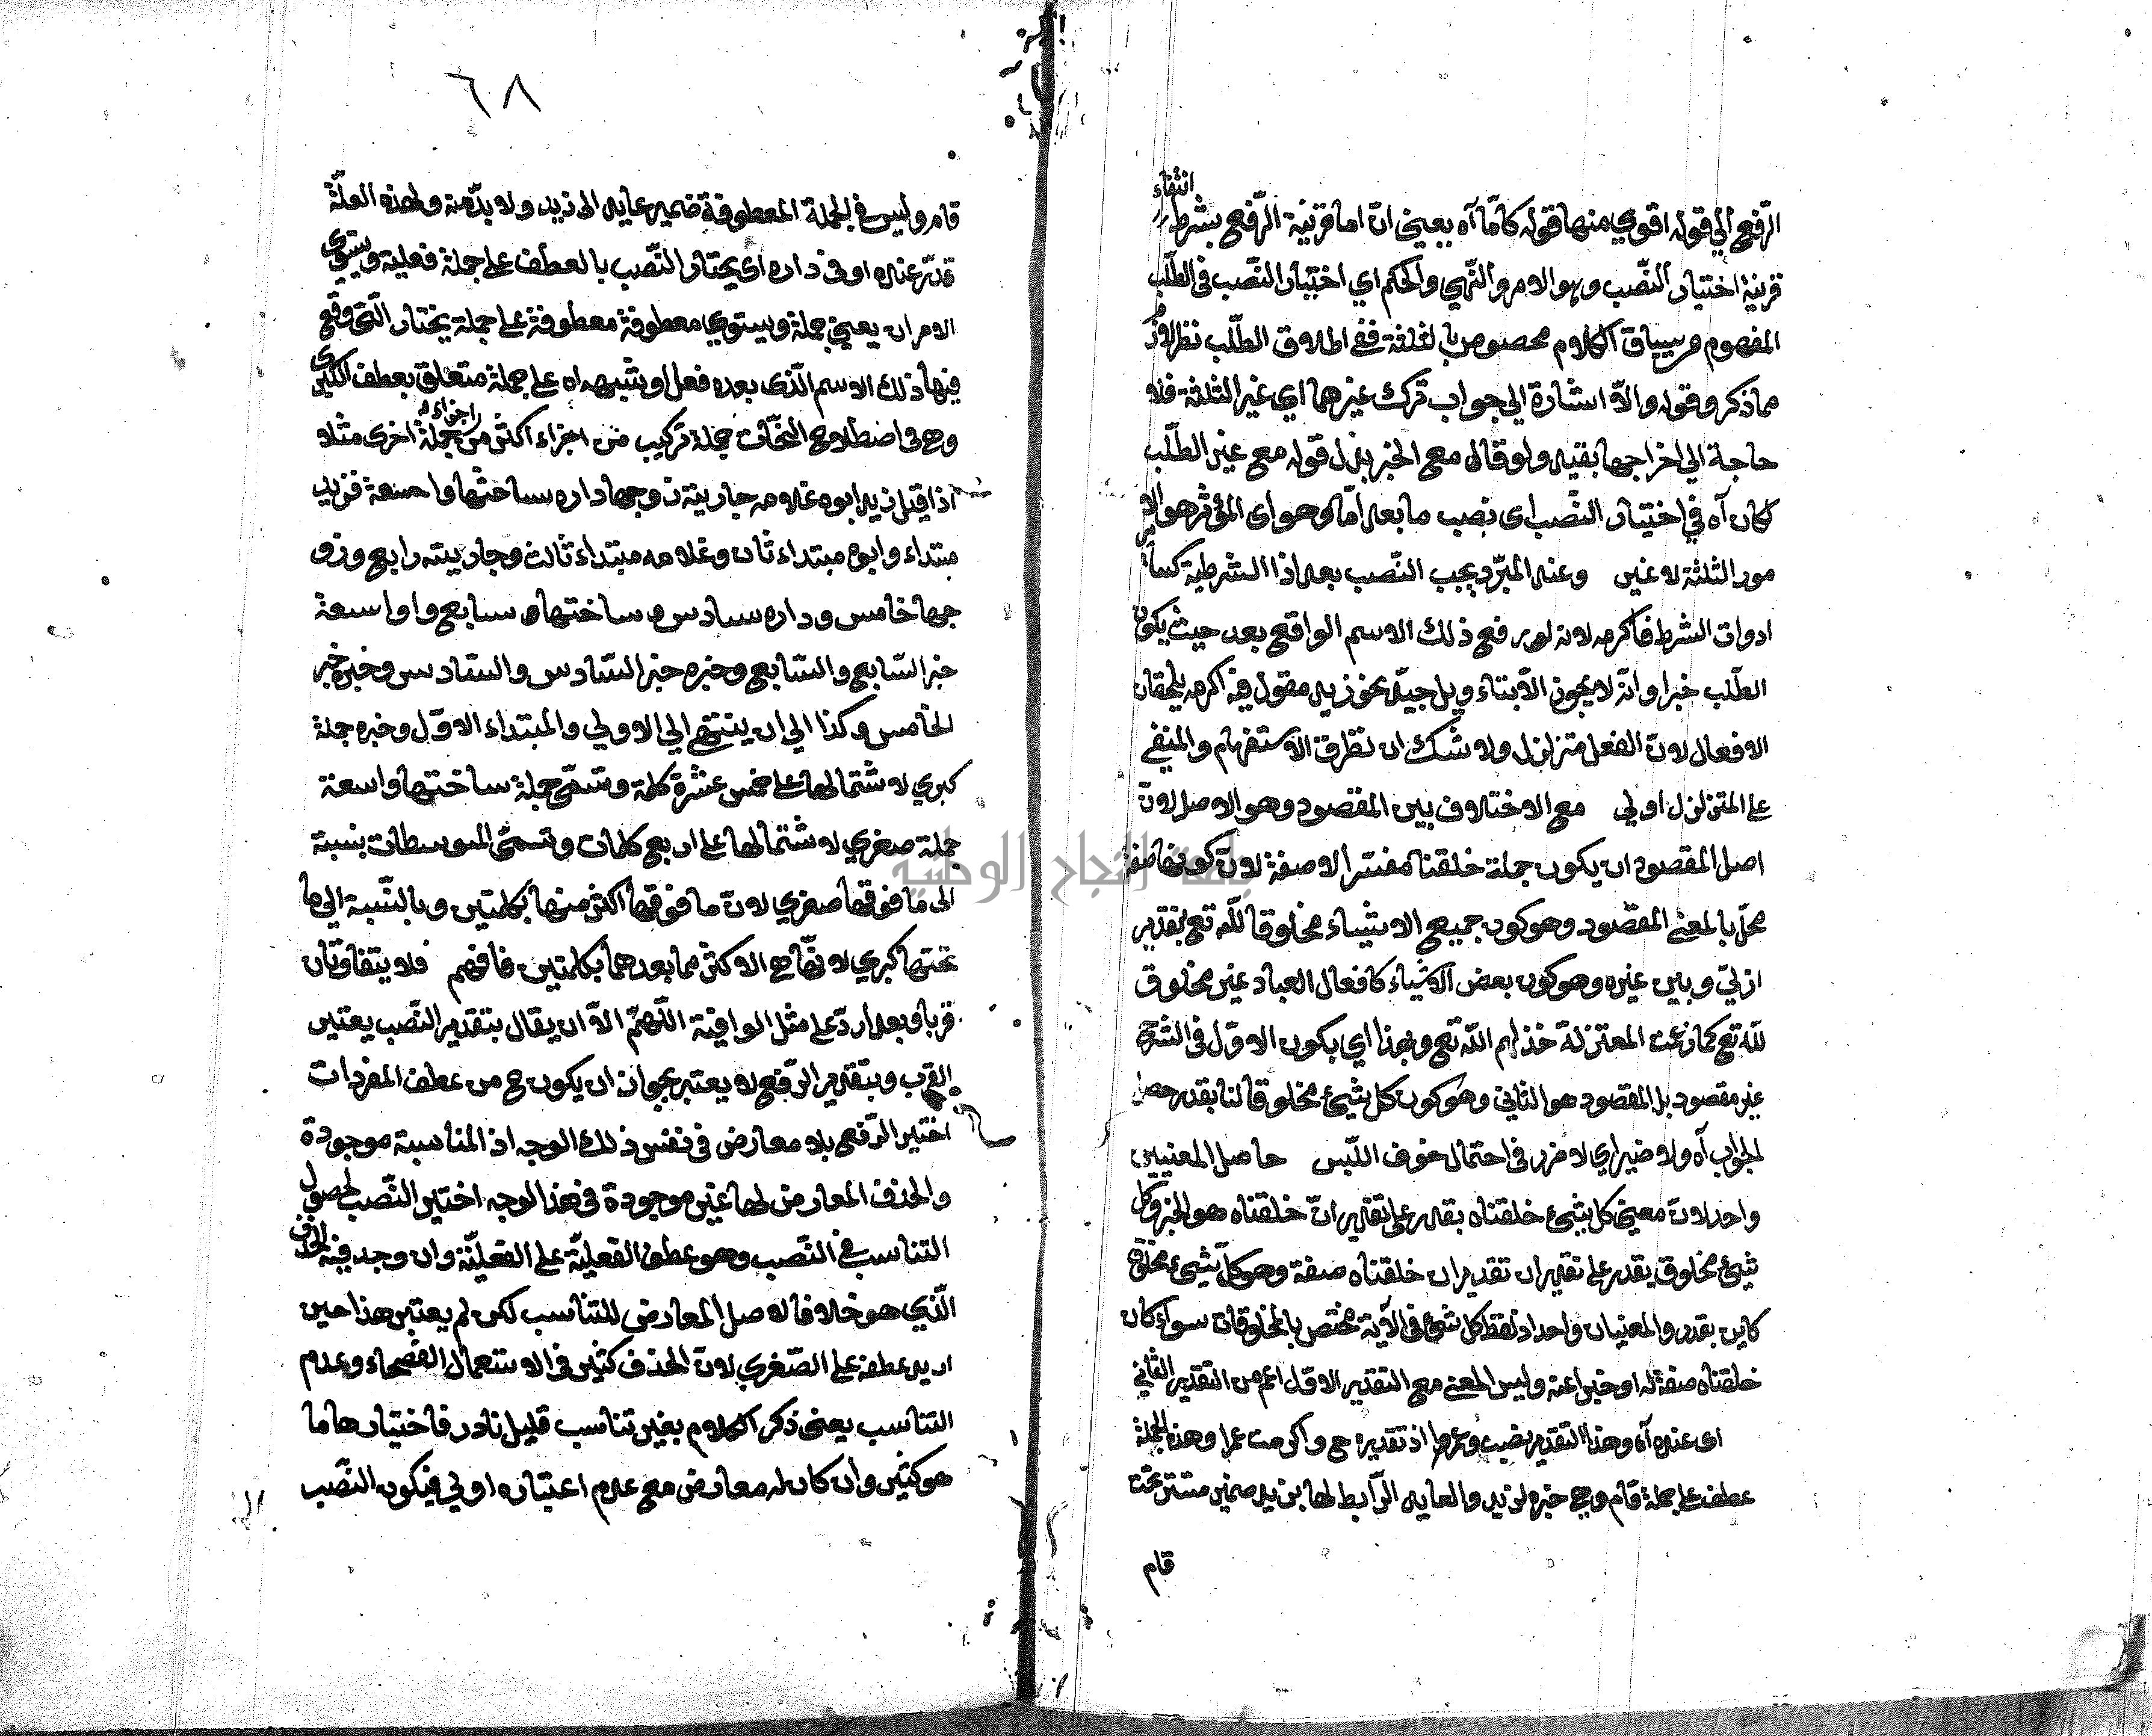 انتفاء
الرّفع الي قوله اقوي منها قوله كامّا آه يعيني انّ اما قرنية الرّفع بشرط
قرنية اختيار النّصب وهو الامر والنّهي والحكم اي اختيار النّصب في الطّلب
المفهوم من سياق الكلام مخصوص بالثلثة ففي اطلاق الطّلب نظر
مما ذكر وقوله والاّ اشارة الي جواب ترك غيرهما اي غير الثلثة فلا
حاجة الي اخراجها بقيد ولو قال مع الخبر بدل قوله مع غير الطّلب
كان آه في اختيار النّصب اى نصب ما بعد امّا وهو اى المؤثر هو الا
مور الثلثة لا غير وعند المبرّد يجب النّصب بعد اذا الشرطية كسائر
ادوات الشرط فاكرمه لانه لو رفع ذلك الاسم الواقع بعد حيث يكون
الطّلب خبرا وانّه لا يجوز الاّ بتاويل جيّد نحو زيد مقول فيه اكرمه يلحقان
الافعال لانّ الفعل متزلزل ولا شك ان نظرق الاستفهام والمنفي
علي المتزلزل اولي مع الاختلاف بين المقصود وهو الاصل لانّ
اصل المقصود ان يكون جملة خلقنا مفسّرا لا صفة لانّ كونها صفة
مخلّ بالمعني المقصود وهو كون جميع الاشياء مخلوقا للّه تع بتقدير
ازليّ وبين غيره وهو كون بعض الاشياء كافعال العباد غير مخلوق
للّه تع كما زعمت المعتزلة خذلهم اللّه تع وبهذا اي بكون الاوّل في الشرح
غير مقصود بل المقصود هو الثاني وهو كون كل شيئ مخلوقا لنا بقدر حصل
الجواب آه ولا ضير اي لا ضرر في احتمال خوف اللّبس حاصل المعنيين
واحد لانّ معيني كل شيئ خلقناه بقدر علي تقدير انّ خلقناه هو الخبر وكل
شيئ مخلوق بقدر علي تقدير ان تقدير ان خلقناه صفة وهو كلّ شيئ مخلوق
كاين بقدر والمعنيان واحد اذ لفظ كل شئ في الآية مختص بالمخلوقات سواء كان
خلقناه صفة له او خبرا عنه وليس المعني مع التقدير الاوّل اعم من التقدير الثّاني
اى عنده آه وهذا التقدير نصب وعمرا اذ تقديره ح واكرمت عمرا وهذه الجملة
عطف علي جملة قام وهي خبره لزيد والعايد الرّابط لها بزيد ضمير مستتر تحت
قام
٦٨
قام وليس في الجملة المعطوفة ضمير عايد الى زيد ولا بدّ منه ولهذه العلّة
قدّر عنده او في داره اى يختار النّصب بالعطف علي جملة فعلية ويستوى
الامران يعيني جملة ويستوي معطوفة معطوفة علي جملة يختار الّتي وقع
فيها ذلك الاسم الّذى بعده فعل او شبهه اه علي جملة متعلق بعطف الكبرى
وهى في اصطلاح النحات جملة تركيب من اجزاء اكثر من اجزاء جملة اخرى مثلا
اذا قيل زيد ابوه غلامه جاريته زوجها داره ساحتها واسعة فزيد
مبتداء وابوه مبتداء ثان وغلامه مبتداء ثالث وجاريته رابع وزو
جها خامس وداره سادس وساختها سابع واواسعة
خبر السّابع والسّابع وخبره خبر السّادس والسّادس وخبره خبر
الخامس وكذا الي ان ينتهي الي الاولي والمبتداء الاوّل وخبره جملة
كبري لاشتمالها علي خمس عشرة كلمة وتسمّي جملة ساختها واسعة
جملة صغري لاشتمالها علي اربع كلمات وتسمّي المتوسطات بنسبة
الى ما فوقها صغري لانّ ما فوقها اكثر منها بكلمتين وبالنّسبة الي ما
تحتها كبري لانّها هي الاكثر مما بعدهما بكلمتين فافهم فلا يتفاوتان
قربا وبعدا ردّ علي مثل الوافية اللّهمّ الاّ ان يقال بتقدير النّصب يعتبر
القرب وبتقدير الرّفع لا يعتبر بجواز ان يكون ح من عطف المفردات
اختير الرّفع بلا معارض في نفس ذلك الوجه اذ المناسبة موجودة
والحذف المعارض لها غير موجودة في هذا الوجه اختير النّصب لحصول
التناسب في النّصب وهو عطف الفعليّة علي الفعليّة وان وجد فيه الحذف
الّذي هو خلاف الاصل المعارض للتناسب لكن لم يعتبر هذا حين
اريد عطفه علي الصّغري لانّ الحذف كثير في الاستعمال الفصحاء وعدم
التناسب يعنى ذكر الكلام بغير تناسب قليل نادر فاختيار ها ما
هو كثير وان كان له معارض مع عدم اعتباره اولي فيكون النّصب